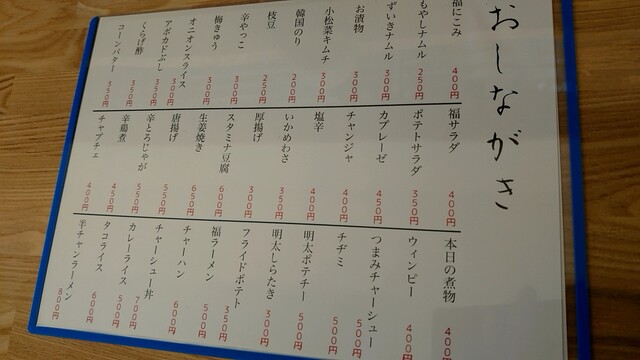 おしながき
福にこみ 400円
もやしナムル 250円
ずいきナムル 300円
お漬物 300円
小松菜キムチ 300円
韓国のり 200円
枝豆 250円
辛やっこ 300円
梅きゅう 300円
オニオンスライス 300円
アボカドぶし 350円
くらげ酢 350円
コーンバター 350円
福サラダ 400円
ポテトサラダ 350円
カプレーゼ 450円
チャンジャ 400円
塩辛 400円
いかめわさ 350円
厚揚げ 300円
スタミナ豆腐 600円
生姜焼き 650円
唐揚げ 550円
辛とろじゃが 550円
辛鶏煮 450円
チャプチェ 400円
本日の煮物 400円
ウィンピー 400円
つまみチャーシュー 500円
チヂミ 500円
明太ポテチー 500円
明太しらたき 300円
フライドポテト 350円
福ラーメン 500円
チャーハン 600円
チャーシュー丼 700円
カレーライス 500円
タコライス 600円
半チャンラーメン 800円